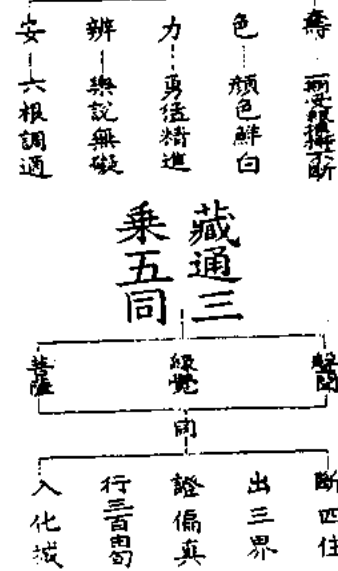 壽
色 顏色鮮白
力 勇猛精進
辨 樂說無礙
安 六根調適
藏通三
乘五同
聲聞
緣覺
菩薩
同
斷四住
出三界
證偏真
行三百由旬
入化城